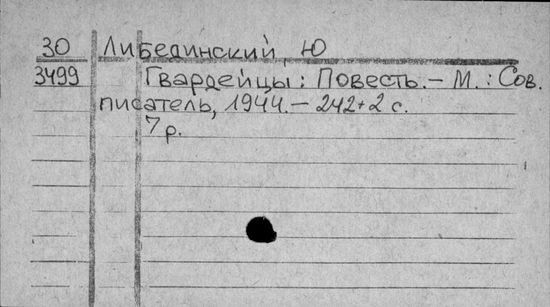 30 Либединский, Ю
3499 Гвардейцы: Повесть. – М.: Сов.
писатель, 1944. – 242+2 с.
7 р.